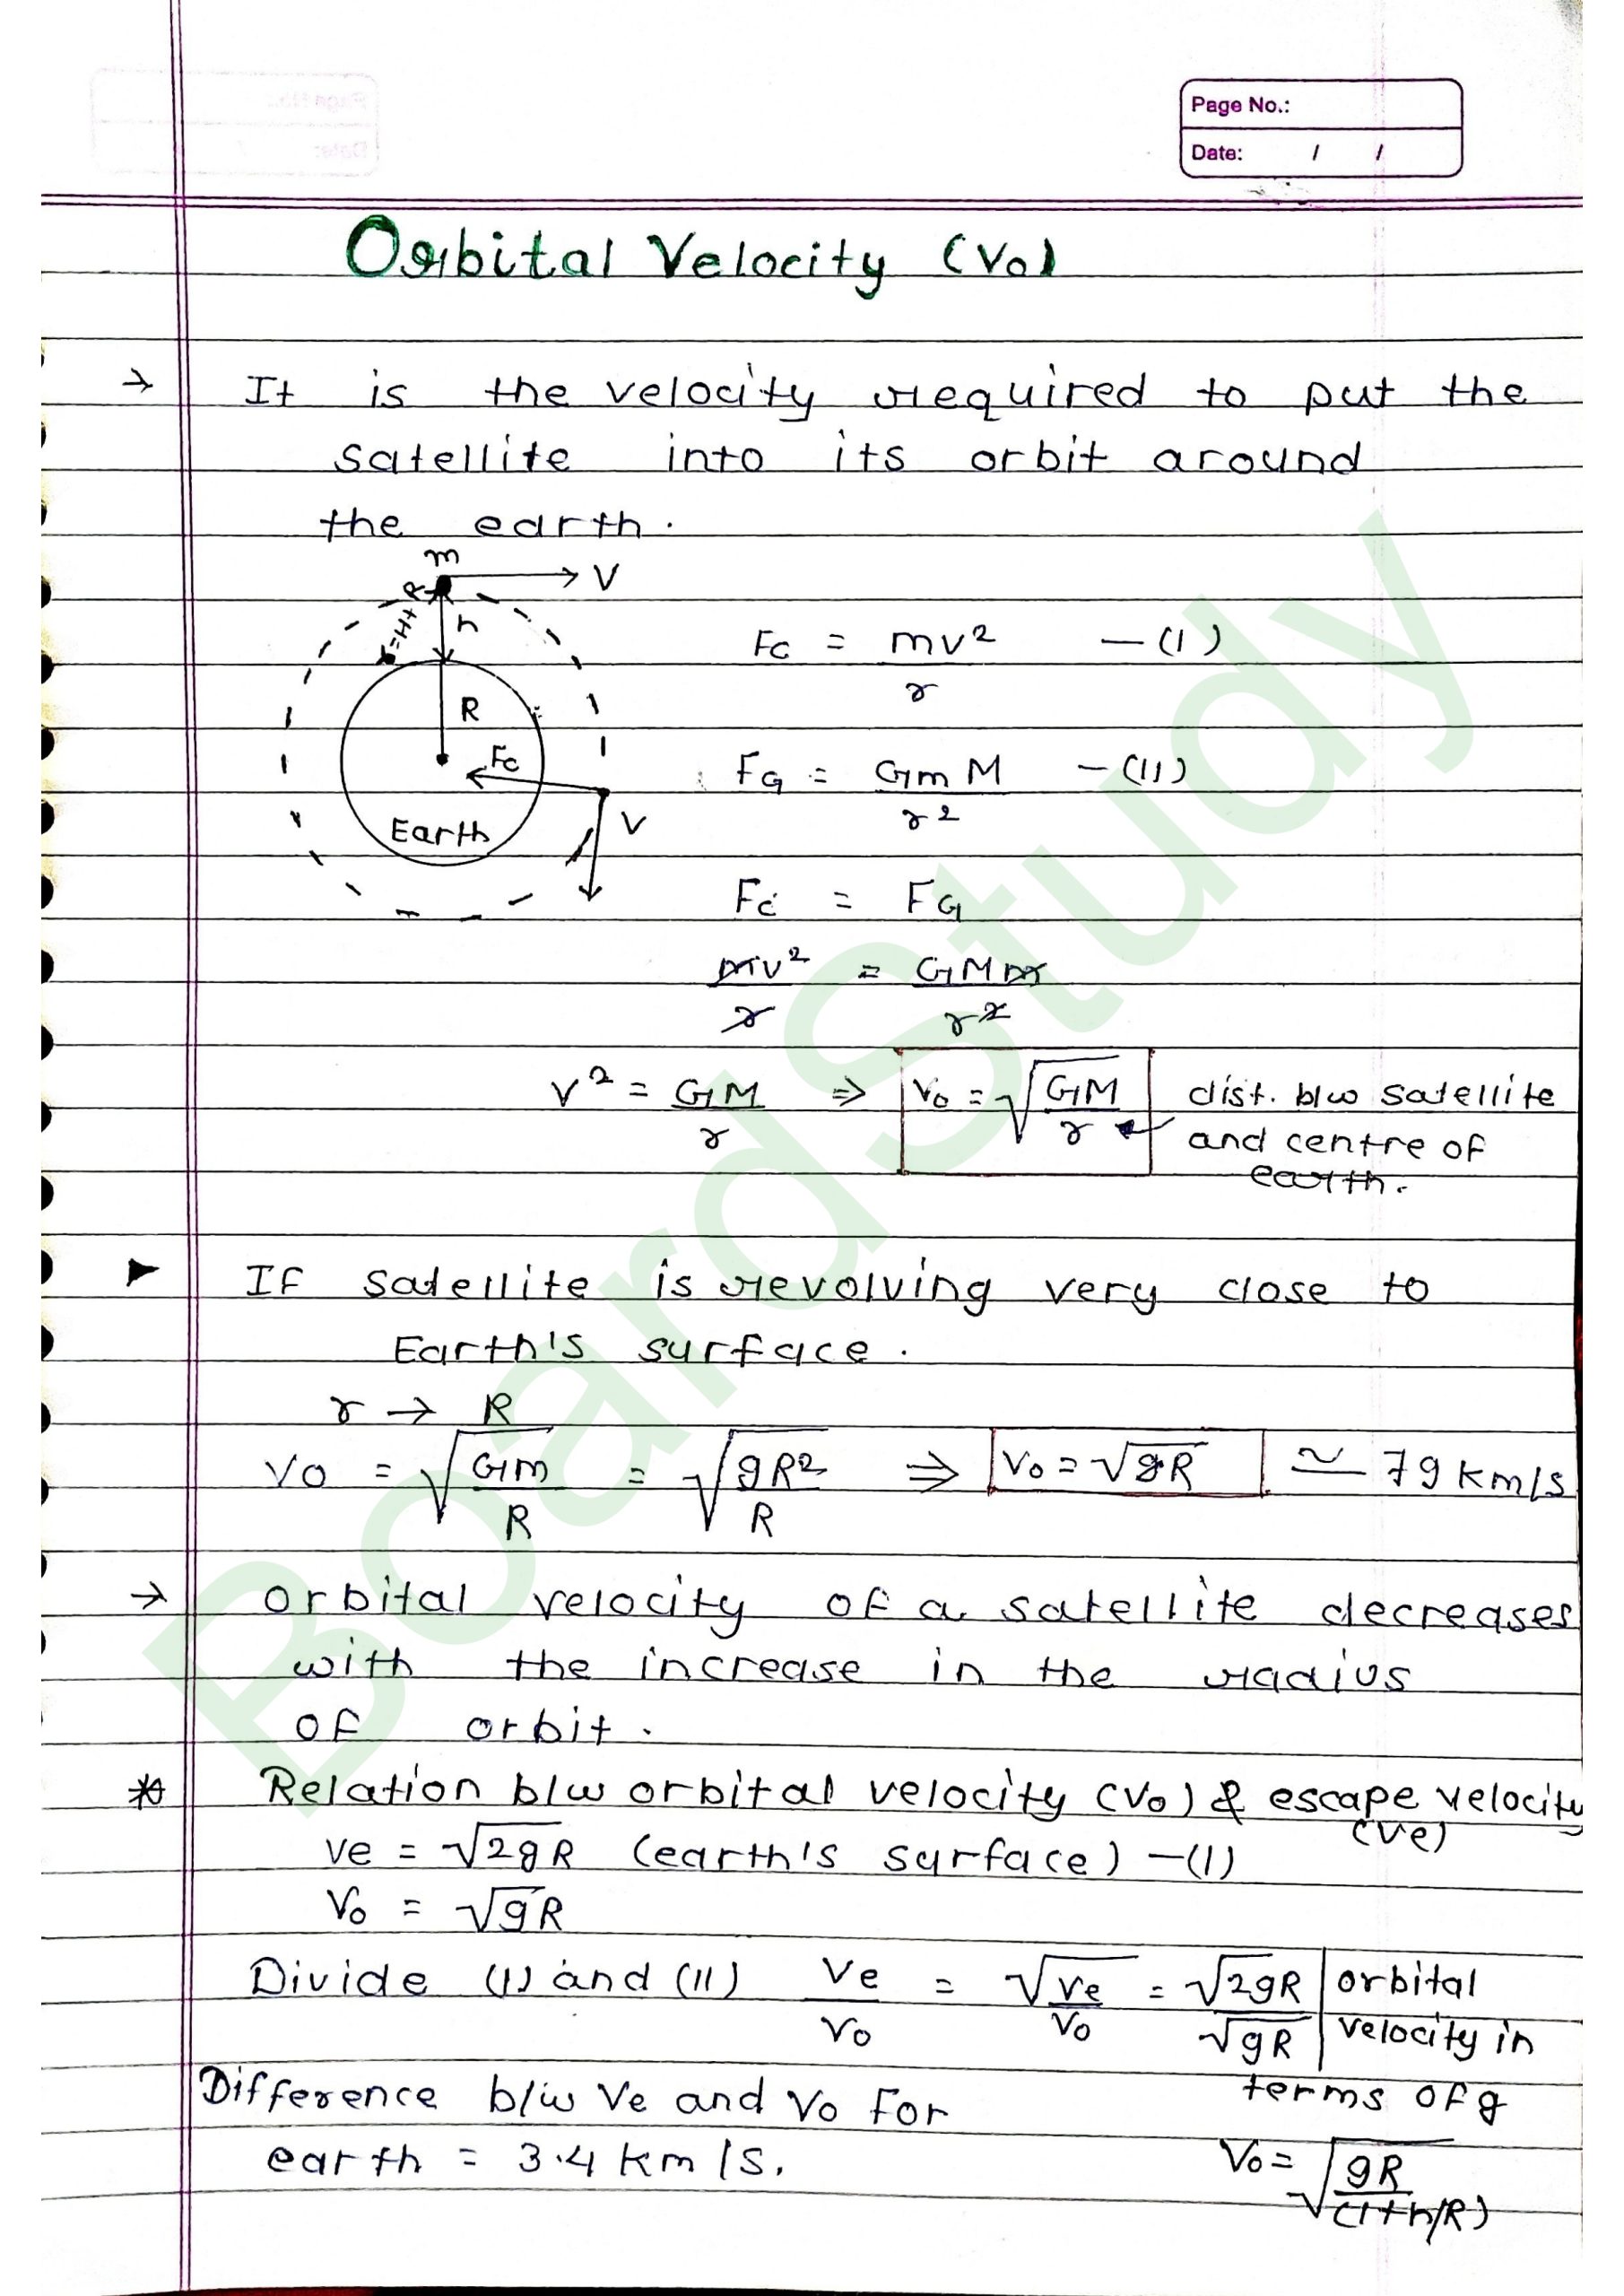 Page No.:
Date: / /
Orbital Velocity (Vo)
→ It is the velocity required to put the
satellite into its orbit around
the earth.
m
V
r = H + R
h
R
Fc
Earth
V
Fc = mv² / r — (I)
FG = GmM / r² — (II)
Fc = FG
mv² / r = GMm / r²
v² = GM / r ⇒ Vo = √(GM / r) dist. b/w satellite
and centre of
earth.
▶ If satellite is revolving very close to
Earth's surface.
r → R
Vo = √(GM / R) = √(gR² / R) ⇒ Vo = √gR ≃ 79 km/s
→ Orbital velocity of a satellite decreases
with the increase in the radius
of orbit.
* Relation b/w orbital velocity (Vo) & escape velocity
(Ve)
ve = √2gR (earth's surface) — (I)
Vo = √gR
Divide (I) and (II) Ve / Vo = √(Ve / Vo) = √2gR / √gR orbital
velocity in
terms of g
Difference b/w Ve and Vo for
earth = 3.4 km/s.
Vo = √(gR / (1+h/R))
BoardStudy